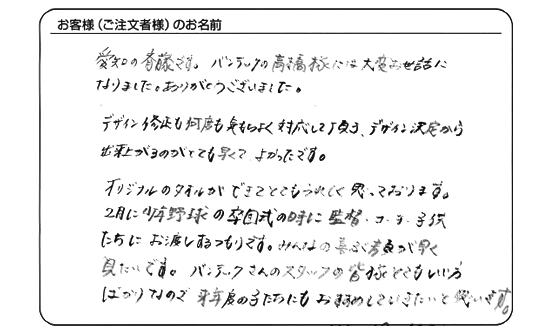 お客様（ご注文者様）のお名前
愛知の斉藤です。バンテックの高橋様には大変お世話に
なりました。ありがとうございました。
デザイン修正も何度も気もちよく対応して頂き、デザイン決定から
出来上がるのがとても早くてよかったです。
オリジナルのタオルができてとてもうれしく思っております。
2月に少年野球の卒団式の時に監督・コーチ・子供
たちにお渡しするつもりです。みんなの喜ぶ顔が早く
見たいです。バンテックさんのスタッフの皆様とてもいい方
ばかりなので来年度の子たちにもお勧めしていきたいと思います。